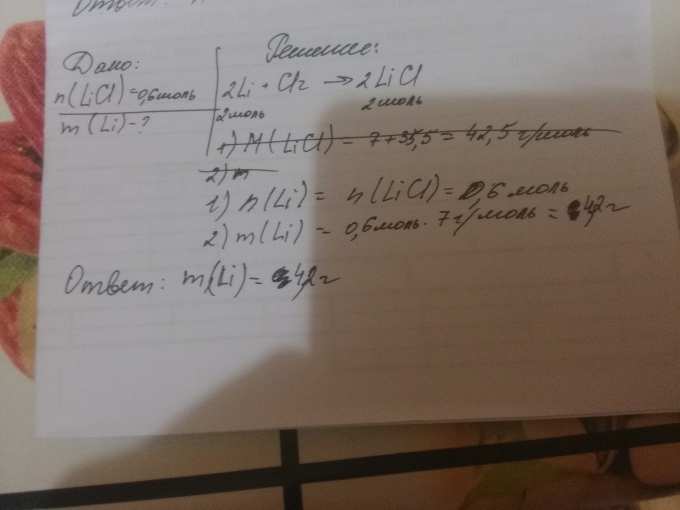 Ответ:
Дано:
n(LiCl)=0,6моль
m(Li)-?
Решение:
2Li + Cl2 → 2LiCl
2моль 2моль
1) M(LiCl) = 7+35,5 = 42,5 г/моль
2) m
1) n(Li) = n(LiCl) = 0,6 моль
2) m(Li) = 0,6моль · 7 г/моль = 4,2г
Ответ: m(Li) = 4,2г